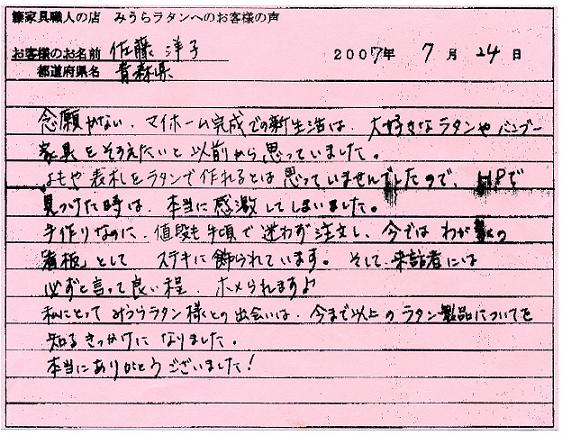 籐家具職人の店 みうらラタンへのお客様の声
お客様のお名前 佐藤 洋子 2007年 7月 24日
都道府県名 青森県
念願かない、マイホーム完成での新生活は、大好きなラタンやバンブー
家具をそろえたいと以前から思っていました。
よもや表札をラタンで作れるとは思っていませんでしたので、HPで
見つけた時は、本当に感激してしまいました。
手作りなのに、値段も手頃で迷わず注文し、今では わが家の
看板」として ステキに飾られています。そして来訪者には
必ずと言って良い程、ホメられますよ
私にとって みうらラタン様との出会いは、今まで以上のラタン製品についてを
知るきっかけになりました。
本当にありがとうございました！